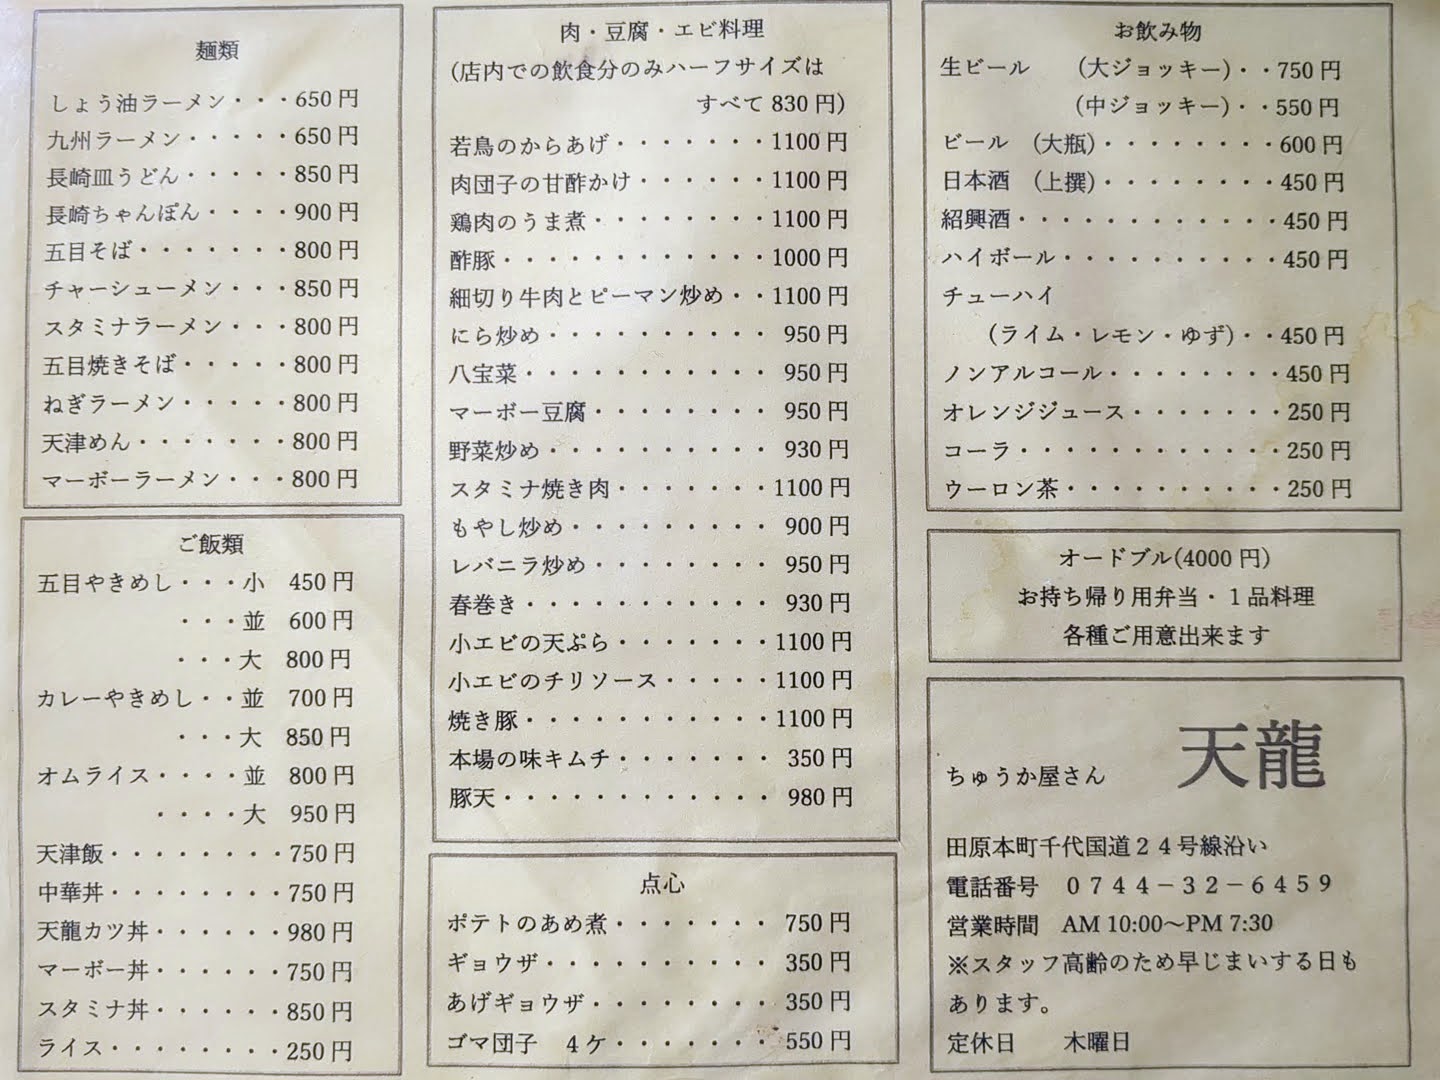 麺類
しょう油ラーメン・・・650円
九州ラーメン・・・・・650円
長崎皿うどん・・・・・850円
長崎ちゃんぽん・・・・900円
五目そば・・・・・・・800円
チャーシューメン・・・850円
スタミナラーメン・・・800円
五目焼きそば・・・・・800円
ねぎラーメン・・・・・800円
天津めん・・・・・・・800円
マーボーラーメン・・・800円
ご飯類
五目やきめし・・・小 450円
・・・並 600円
・・・大 800円
カレーやきめし・・並 700円
・・・大 850円
オムライス・・・・並 800円
・・・・大 950円
天津飯・・・・・・・・750円
中華丼・・・・・・・・750円
天龍カツ丼・・・・・・980円
マーボー丼・・・・・・750円
スタミナ丼・・・・・・850円
ライス・・・・・・・・250円
肉・豆腐・エビ料理
(店内での飲食分のみハーフサイズは
すべて830円)
若鳥のからあげ・・・・・・・1100円
肉団子の甘酢かけ・・・・・・1100円
鶏肉のうま煮・・・・・・・・1100円
酢豚・・・・・・・・・・・・1000円
細切り牛肉とピーマン炒め・・1100円
にら炒め・・・・・・・・・・950円
八宝菜・・・・・・・・・・・950円
マーボー豆腐・・・・・・・・950円
野菜炒め・・・・・・・・・・930円
スタミナ焼き肉・・・・・・・1100円
もやし炒め・・・・・・・・・900円
レバニラ炒め・・・・・・・・950円
春巻き・・・・・・・・・・・930円
小エビの天ぷら・・・・・・・1100円
小エビのチリソース・・・・・1100円
焼き豚・・・・・・・・・・・1100円
本場の味キムチ・・・・・・・350円
豚天・・・・・・・・・・・・980円
点心
ポテトのあめ煮・・・・・・・750円
ギョウザ・・・・・・・・・・350円
あげギョウザ・・・・・・・・350円
ゴマ団子 4ケ・・・・・・・・550円
お飲み物
生ビール (大ジョッキー)・・750円
(中ジョッキー)・・550円
ビール (大瓶)・・・・・・・・600円
日本酒 (上撰)・・・・・・・・450円
紹興酒・・・・・・・・・・・・450円
ハイボール・・・・・・・・・・450円
チューハイ
(ライム・レモン・ゆず)・・450円
ノンアルコール・・・・・・・・450円
オレンジジュース・・・・・・・250円
コーラ・・・・・・・・・・・・250円
ウーロン茶・・・・・・・・・・250円
オードブル(4000円)
お持ち帰り用弁当・1品料理
各種ご用意出来ます
ちゅうか屋さん 天龍
田原本町千代国道24号線沿い
電話番号 0744－32－6459
営業時間 AM 10:00～PM 7:30
※スタッフ高齢のため早じまいする日も
あります。
定休日 木曜日